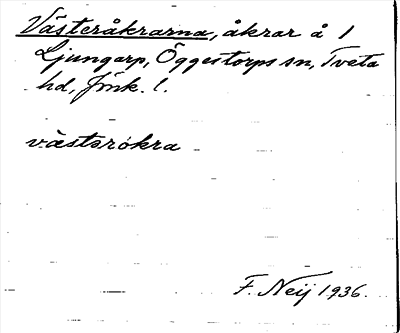 Västeråkrarna, åkrar å 1
Ljungarp, Öggestorps sn, Tveta
hd, Jmk. l.
västərokra
F. Neij 1936.